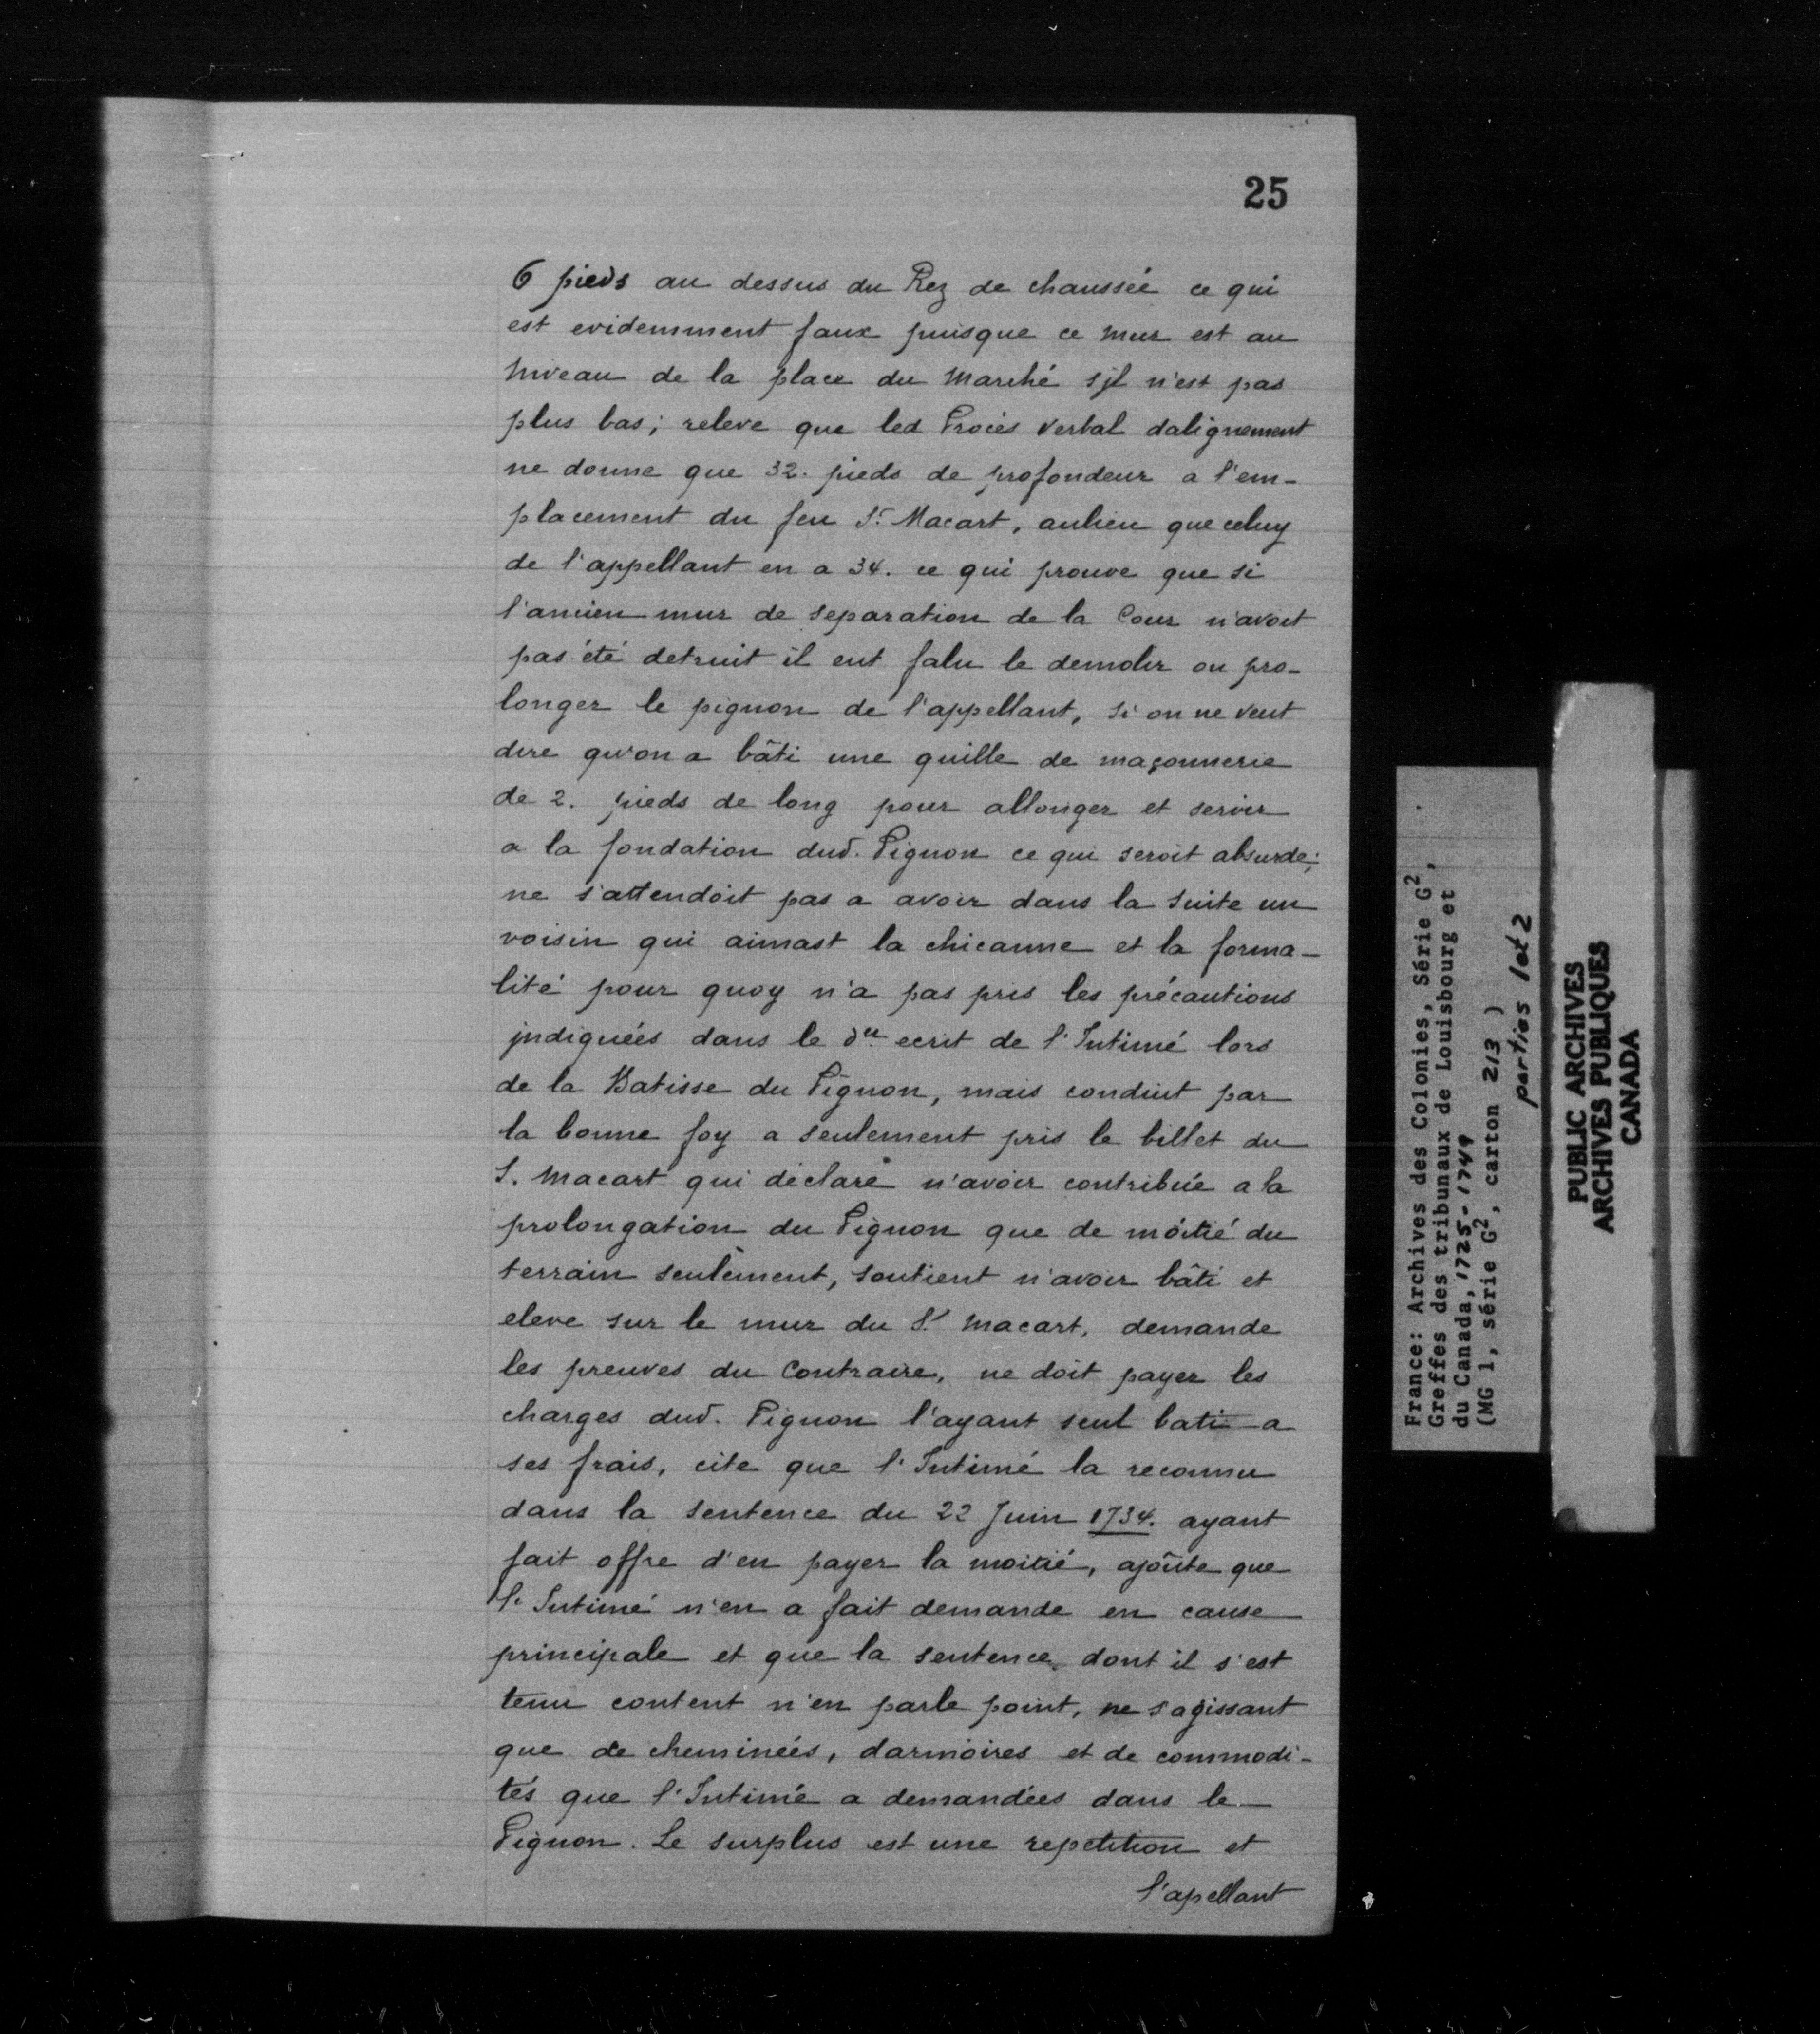 25
6 pieds au dessus du Rez de chaussée ce qui
est evidemment faux puisque ce mur est au
niveau de la place du Marché sjl n'est pas
plus bas; releve que led Procès verbal dalignement
ne donne que 32. pieds de profondeur a l'em-
placement du feu Sr Macart, aulieu que celuy
de l'appellant en a 34. ce qui prouve que si
l'ancien mur de separation de la Cour n'avoit
pas été detruit il eut falu le demolir ou pro-
longer le pignon de l'appellant, si on ne veut
dire qu'on a bâti une quille de maçonnerie
de 2. pieds de long pour allonger et servir
a la fondation dud. Pignon ce qui seroit absurde;
ne s'attendoit pas a avoir dans la suite un
voisin qui aimast la chicanne et la forma-
lité pour quoy n'a pas pris les précautions
jndiquées dans le der ecrit de l'Intimé lors
de la Batisse du Pignon, mais conduit par
la bonne foy a seulement pris le billet du
S. Macart qui déclare n'avoir contribué a la
prolongation du Pignon que de moitié du
terrain seulement, soutient n'avoir bâti et
eleve sur le mur du Sr Macart, demande
les preuves du Contraire, ne doit payer les
charges dud. Pignon l'ayant seul bati a
ses frais, cite que l'Intimé la reconnu
dans la sentence du 22 Juin 1734. ayant
fait offre d'en payer la moitié, ajoûte que
l'Intimé n'en a fait demande en cause
principale et que la sentence dont il s'est
tenu content n'en parle point, ne sagissant
que de cheminées, darmoires et de commodi-
tés que l'Intimé a demandées dans le
Pignon. Le surplus est une repetition et
l'apellant
France: Archives des Colonies, Série G2,
Greffes des tribunaux de Louisbourg et
du Canada, 1725-1749
(MG 1, série G2, carton 213 )
parties 1 et 2
PUBLIC ARCHIVES
ARCHIVES PUBLIQUES
CANADA